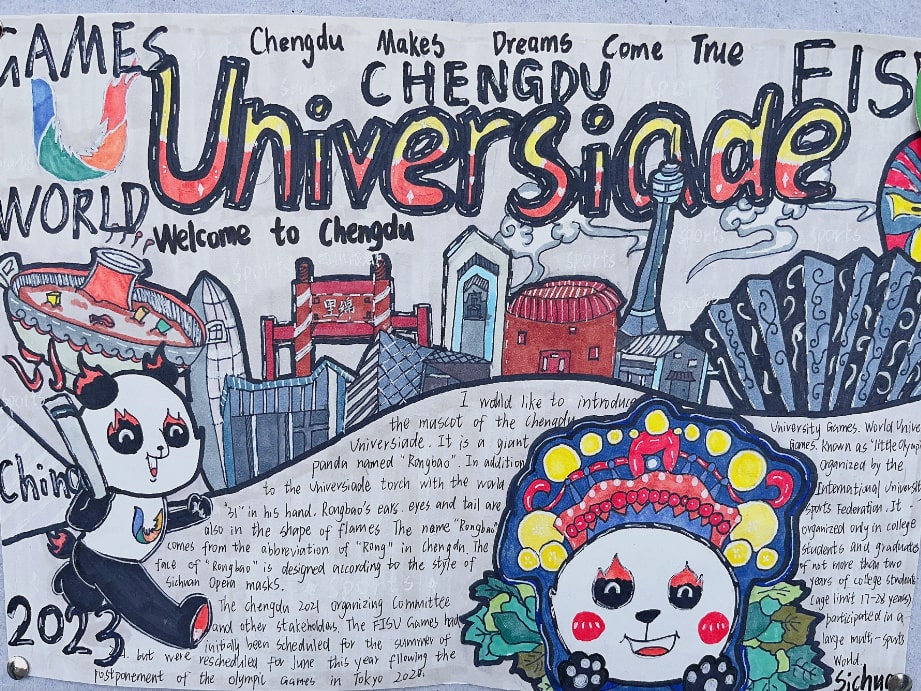 GAMES
Chengdu Makes Dreams Come True
CHENGDU
FISU
Universiade
WORLD
Welcome to Chengdu
I would like to introduce
the mascot of the Chengdu
Universiade. It is a giant
panda named "Rongbao". In addition
to the Universiade torch with the world
"31" in his hand. Rongbao's ears. eyes and tail are
also in the shape of flames. The name "Rongbao"
comes from the abbreviation of "Rong" in Chengdu. The
face of "Rongbao" is designed according to the style of
Sichuan Opera masks.
The chengdu 2021 organizing Committee
and other stakeholdas. The FISU Games had
initially been scheduled for the summer of
but were rescheduled for June this year fllowing the
postponement of the olympic Games in Tokyo 2020.
University Games. World Unive
Games. Known as "little Olymp
organized by the
International Universit
Sports Federation. It
organized only in college
students and graduates
of not more than two
years of college students
(age limit 17-28 years)
participated in a
large multi-spots
World.
China
2023
Sichua